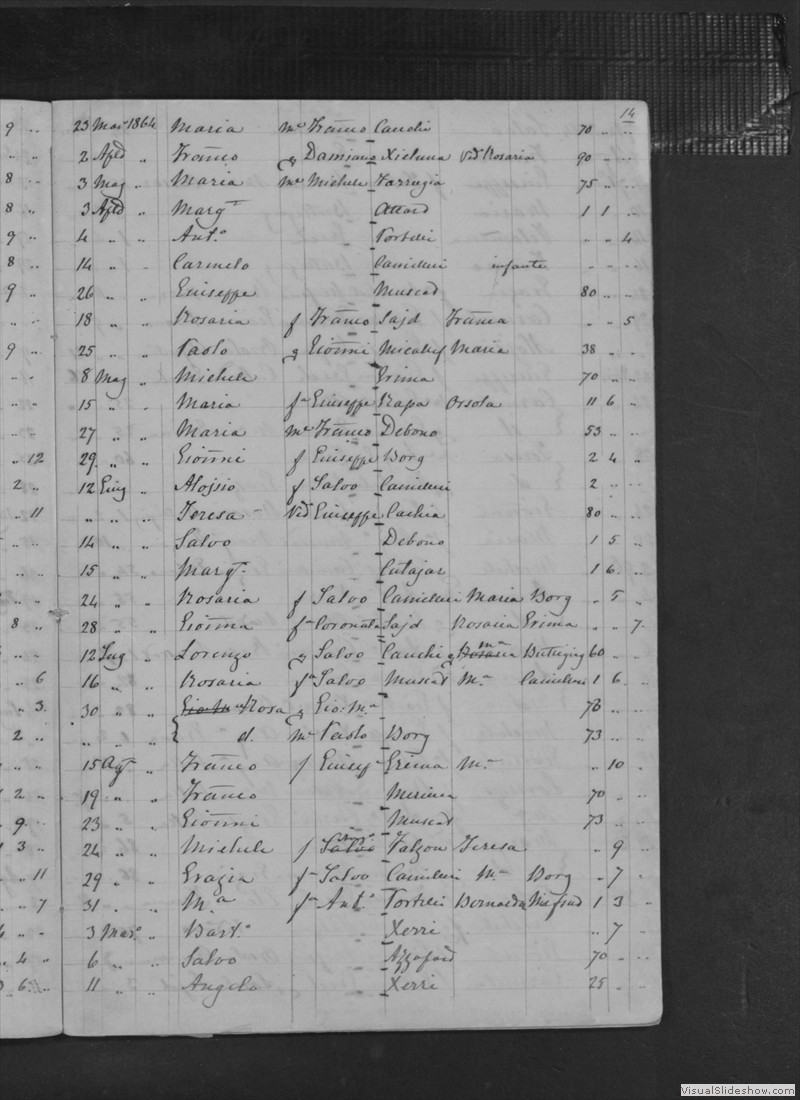 14
9 .. 23 Mar 1864 Maria me Franco Cauchi 70 .. ..
.. .. 2 Apld .. Franco q Damiano Xicluna Vid Rosaria 90 .. ..
8 .. 3 Mag .. Maria me Michele Farrugia 75 .. ..
8 .. 3 Apld .. Margta Attard 1 1 ..
9 .. 4 .. .. Anto Portelli .. .. 4
8 .. 14 .. .. Carmelo Camilleri infante .. .. ..
9 .. 26 .. .. Giuseppe Muscat 80 .. ..
.. 18 .. .. Rosaria f Franco Sajd Franca .. .. 5
9 .. 25 .. .. Paolo q Gioanni Micalef Maria 38 .. ..
.. 8 Mag .. Michele Grima 70 .. ..
.. .. 15 .. .. Maria fa Giuseppe Rapa Orsola 11 6 ..
.. .. 27 .. .. Maria me Franco Debono 53 .. ..
.. 12 29 .. .. Gioanni f Giuseppe Borg 2 4 ..
2 .. 12 Giug .. Aloisio f Salvo Camilleri 2 .. ..
.. 11 .. .. .. Teresa Vid Giuseppe Cachia 80 .. ..
.. 14 .. .. Salvo Debono 1 5 ..
.. .. 15 .. .. Margta Cutajar 1 6 ..
.. .. 24 .. .. Rosaria f Salvo Camilleri Maria Borg .. 5 ..
8 .. 28 .. .. Gioanna fa Coronata Sajd Rosaria Grima .. .. 7
12 Lug .. Lorenzo q Salvo Cauchi q Rosaria Ma Buttigieg 60 .. ..
.. 6 16 .. .. Rosaria fa Salvo Muscat Ma Camilleri 1 6 ..
.. 3. 30 .. .. Gio. Ma Rosa q Gio. Ma 78 .. ..
2 .. .. .. .. d. me Paolo Borg 73 .. ..
.. 15 Agt .. Franco f Giusep Grima Ma .. 10 ..
2 .. 19 .. .. Franco 70 .. ..
9. 23 .. .. Gioanni Muscat 73 .. ..
3 .. 24 .. .. Michele f Salvo Falzon Teresa .. 9 ..
.. 11 29 .. .. Grazia fa Salvo Camilleri Ma Borg .. 7 ..
.. 7 31 .. .. Ma fa Anto Portelli Bernarda Mifsud 1 3 ..
.. 3 Mar. .. Barto Xerri .. 7 ..
4 .. 6 .. .. Salvo Azzopard 70 .. ..
6. .. 11 .. .. Angelo Xerri 25 .. ..
VisualSlideshow.com